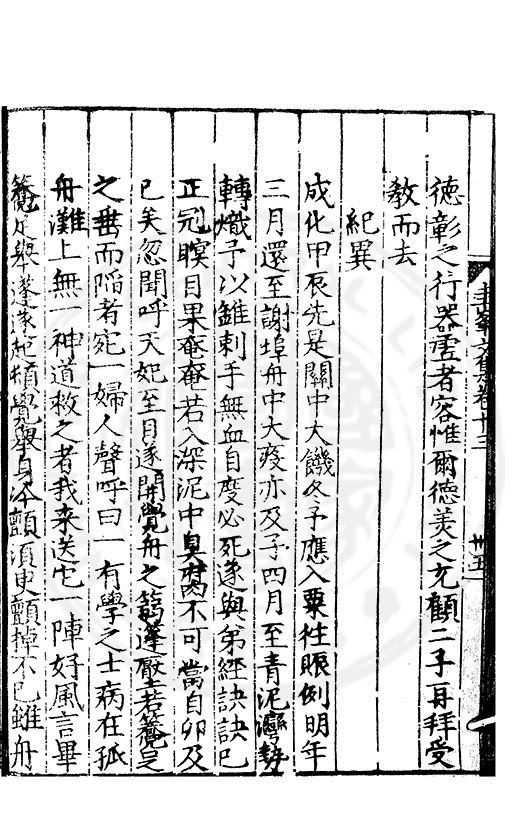 圭峯文集卷十三
卅五
德彰之行器虛者容惟爾德美之充顧二子再拜受
教而去
紀異
成化甲辰先是關中大饑冬予應入粟往賑例明年
三月還至謝埠舟中大疫亦及予四月至青泥灣勢
轉熾予以錐刺手無血自度必死遂與弟經訣訣已
正冠瞑目果奄奄若入深泥中臭腐不可當自卯及
已矣忽聞呼天妃至目遂開覺舟之篛蓬壓若簷
之垂而陷者宛一婦人聲呼曰一有學之士病在孤
舟灘上無一神道救之者我来送它一陣好風言畢
舉蓬遂起植覺舉身冷顫湏臾顫掉不已雖舟